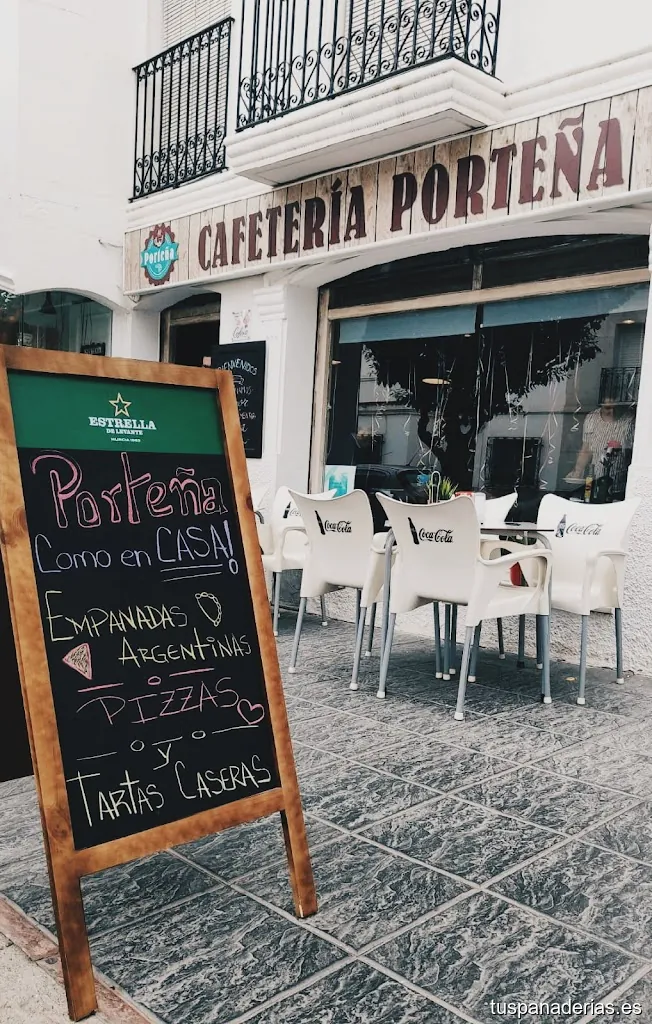 CAFETERÍA PORTEÑA
Porteña
BIENVENIDOS
ESTRELLA
DE LEVANTE
Porteña
Como en CASA!
EMPANADAS
ARGENTINAS
PIZZAS
y
TARTAS CASERAS
Coca-Cola
Coca-Cola
Coca-Cola
tuspanaderias.es